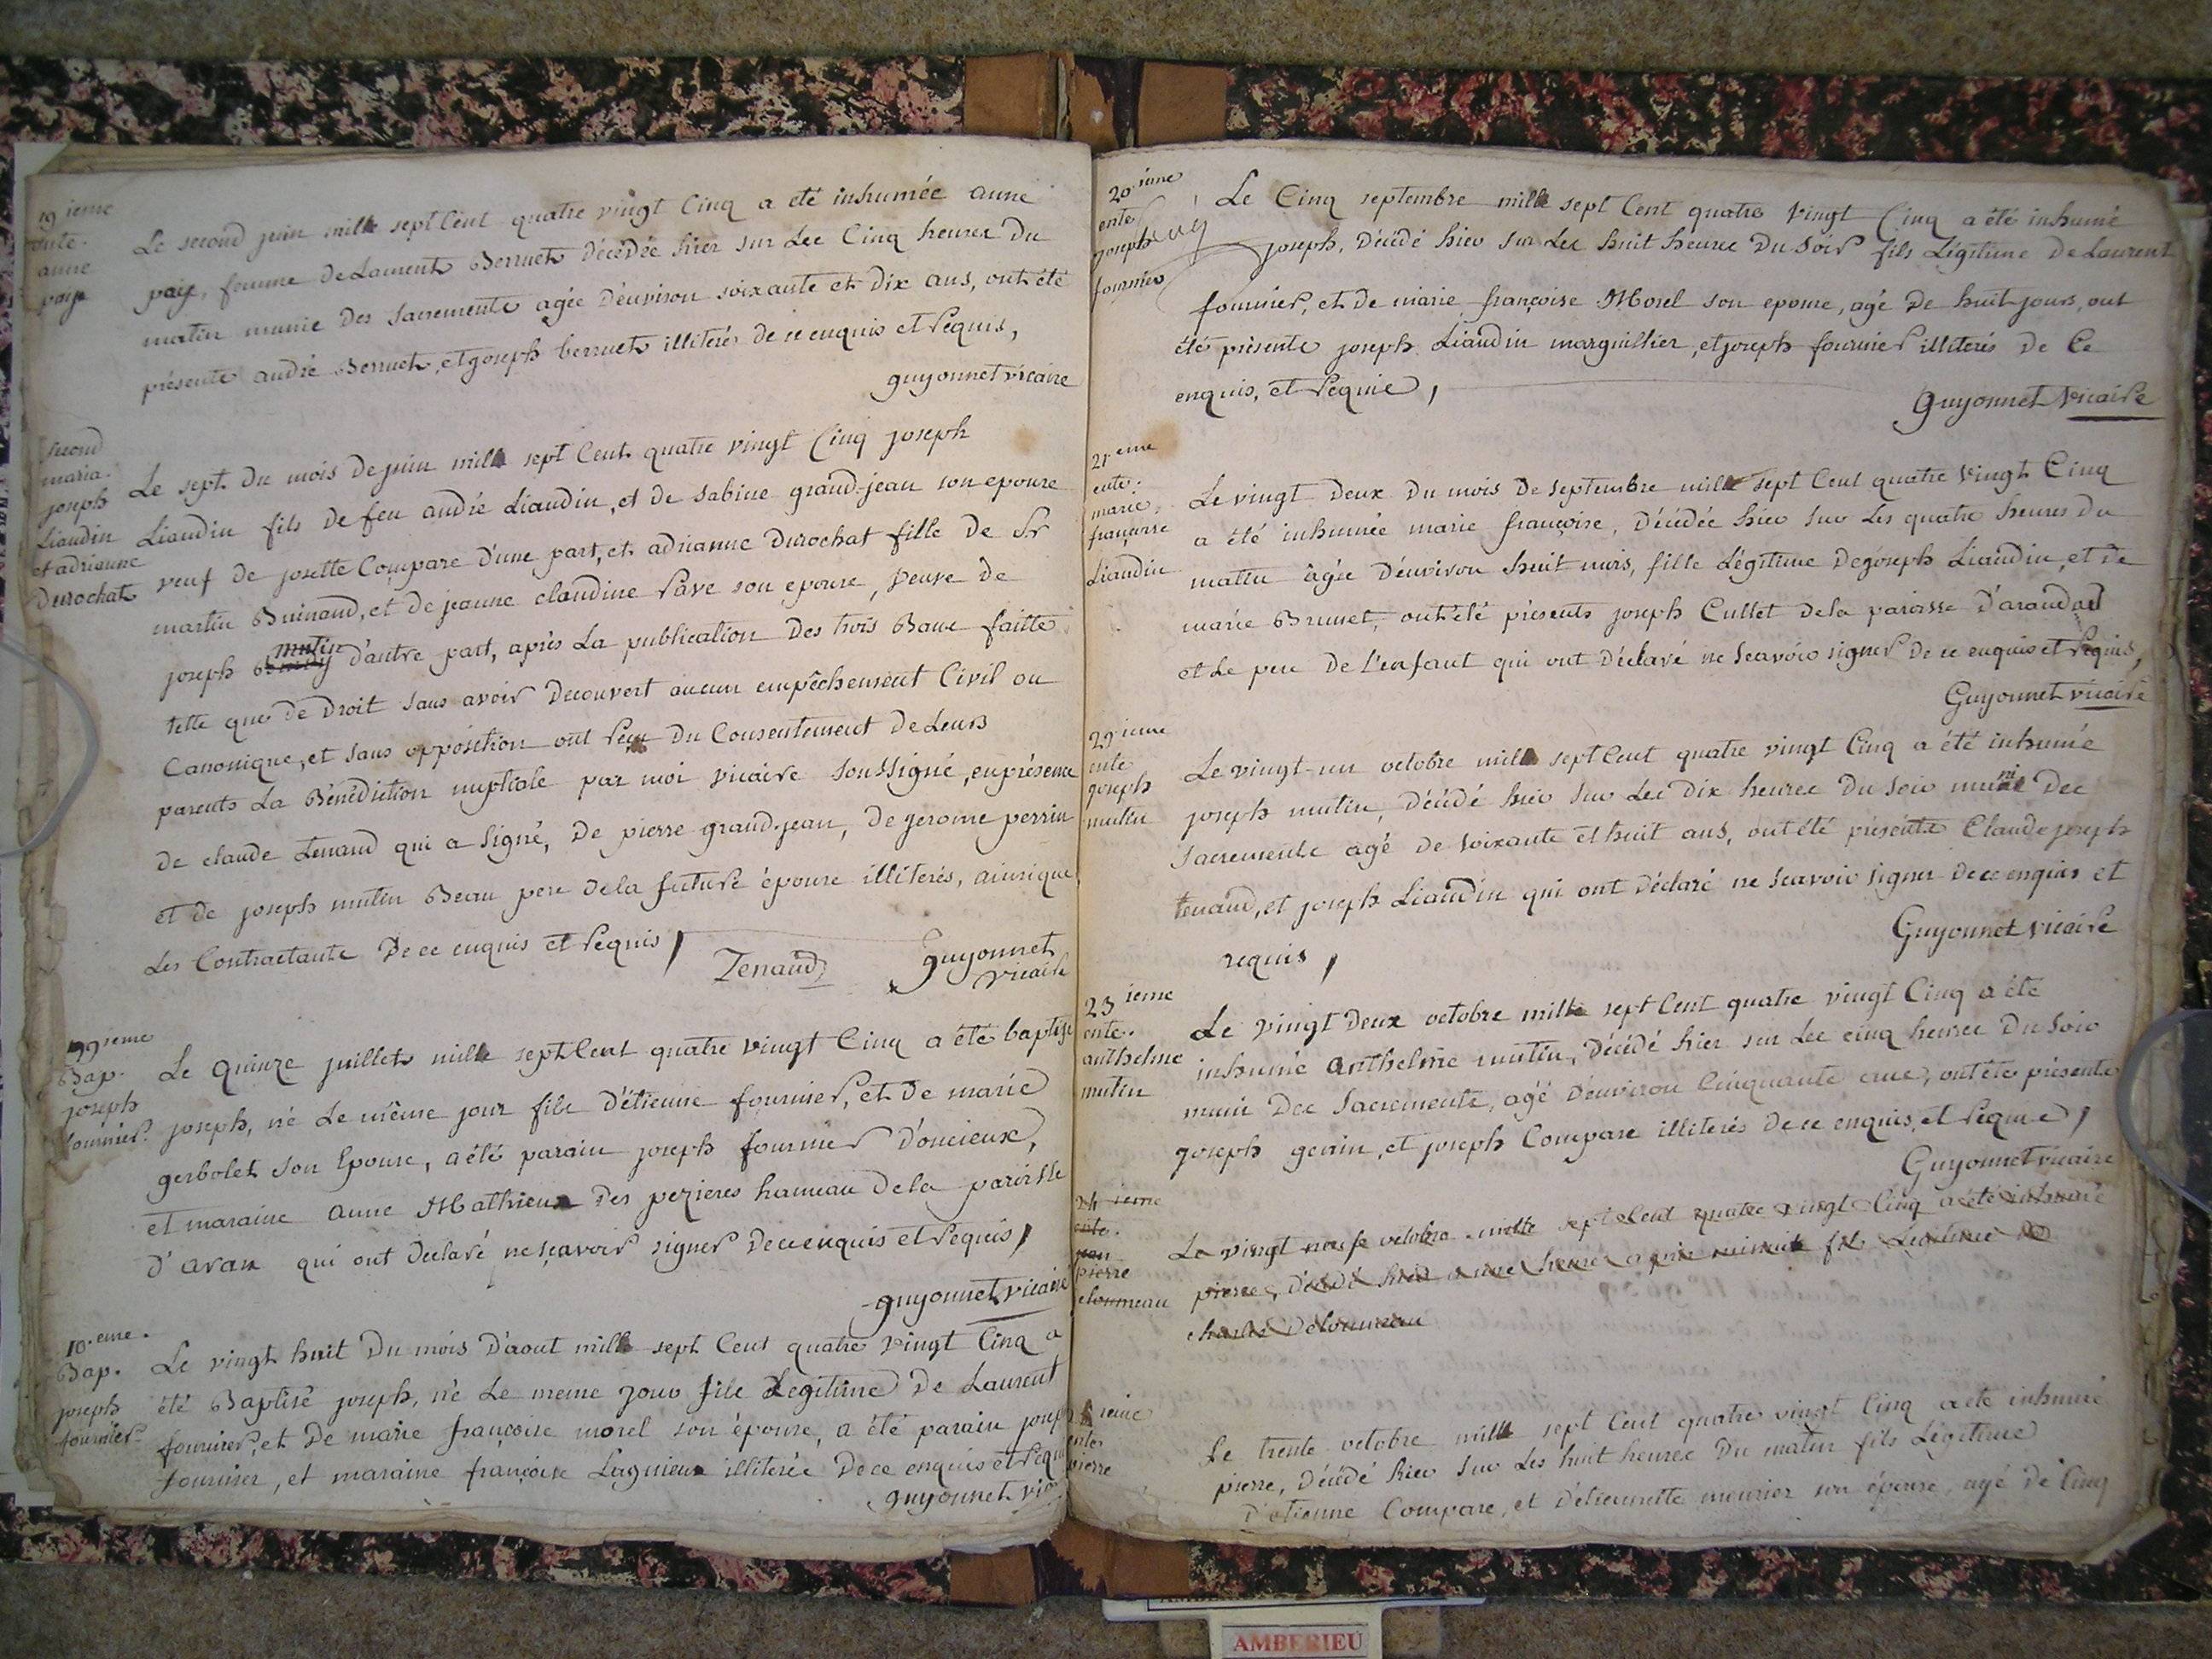 19 ieme
ente.
anne
paye
Le second juin mille sept Cent quatre vingt Cinq a eté inhumée anne
paije, femme de Laurent Berruet Décédée hier sur Les Cinq heures Du
matin munie Des Sacrements agée D'environ soixante et Dix ans, ont été
présents andré Berruet, et joseph berruet illiterés de ce enquis et Requis,
guyonnet vicaire
second
maria.
joseph
Liaudin
et adrienne
Durochat
Le sept Du mois De juin mille sept Cent quatre vingt Cinq joseph
Liaudin fils De feu andré Liaudin, et de Sabine grand-jean son epouse
veuf De josette Compare D'une part, et adrianne Durochat fille De Sr
martin Buinand, et De jeanne claudine Pave son epouse, veuve de
mutin
joseph d'autre part, après La publication Des trois Bans faitte
telle que De Droit sans avoir Decouvert aucun empêchement Civil ou
Canonique, et sans opposition ont Reçu Du Consentement De Leurs
parents La Bénédiction nuptiale par moi vicaire Soussigné, en présence
de claude Tenand qui a signé, De pierre grand-jean, De jerome perrin
et de joseph mutin Beau pere De la future épouse illiterés, ainsi que
Les Contractants De ce enquis et Requis,
Tenand
Guyonnet
vicaire
99 ieme
Bap.
joseph
fournier.
Le quinze juillet mille sept Cent quatre vingt Cinq a été baptisé
joseph, né Le même jour fils D'étienne fournier, et De marie
gerbolet son Epouse, a été parain joseph fournier D'oncieux,
et maraine anne Mathieux Des pezieres hameau De la paroisse
D'aran qui ont Declaré ne sçavoir signer De ce enquis et Requis,
guyonnet vicaire
10.eme.
Bap.
joseph
fournier
Le vingt huit Du mois D'aout mille sept Cent quatre vingt Cinq a
été Baptisé joseph, né Le meme jour fils Legitime De Laurent
fournier, et De marie françoise morel son épouse, a été parain joseph
fournier, et maraine françoise Lagnieux illiterée De ce enquis et Requis
guyonnet vic
20 ieme
ente
joseph
fournier
Le Cinq septembre mille sept Cent quatre vingt Cinq a été inhumé
joseph, Décédé hier sur Les huit heures Du Soir fils Légitime De Laurent
fournier, et de marie françoise Morel son epouse, agé De huit jours, ont
été présents joseph Liaudin marguillier, et joseph fournier illiterés De Ce
enquis, et Requis,
Guyonnet vicaire
21.eme
ente.
marie
françoise
Liaudin
Le vingt Deux Du mois De Septembre mille sept Cent quatre vingt Cinq
a été inhumée marie françoise, Décédée hier sur Les quatre heures du
matin âgée D'environ huit mois, fille Légitime De joseph Liaudin, et de
marie Brunet, ont été présents joseph Cullet de la paroisse D'arandas
et Le pere De L'enfant qui ont Déclaré ne Scavoir signer De ce enquis et Requis,
Guyonnet vicaire
22 ieme
ente
joseph
mutin
Le vingt-un octobre mille sept Cent quatre vingt Cinq a été inhumé
joseph mutin, Décédé hier sur Les Dix heures Du soir muni Des
Sacrements agé de soixante et huit ans, ont été présents Claude joseph
tenand, et joseph Liaudin qui ont Déclaré ne scavoir signer de ce enquis et
requis,
Guyonnet vicaire
23 ieme
ente.
anthelme
mutin
Le vingt Deux octobre mille sept Cent quatre vingt Cinq a été
inhumé anthelme mutin, Décédé hier sur Les cinq heures Du soir
muni Des Sacrements, agé D'environ Cinquante ans, ont été présents
joseph gerin, et joseph Compare illiterés De ce enquis, et Requis,
Guyonnet vicaire
24 ieme
ente.
jean
pierre
Le vingt neuf octobre mille sept Cent quatre vingt Cinq a été inhumé
pierre, Décédé hier a une heure après minuit fils Légitime De
charles Delourneau
ieme
ente.
pierre
Le trente octobre mille sept Cent quatre vingt Cinq a été inhumé
pierre, Décédé hier sur Les huit heures Du matin fils Légitime
D'étienne Compare, et D'étiennette meunier son épouse, agé de Cinq
AMBERIEU